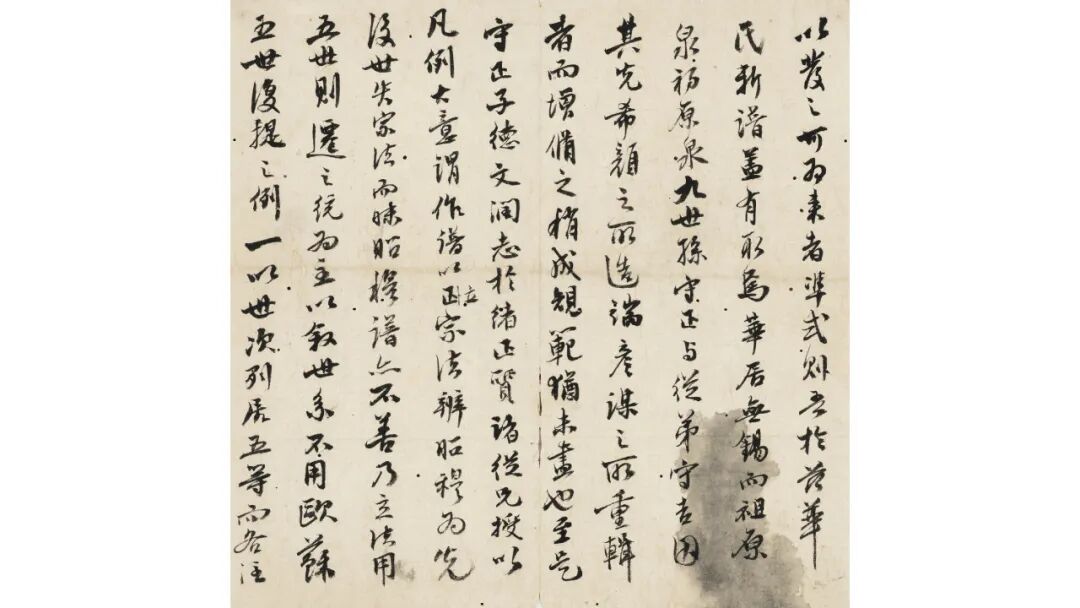 以裳之可为來者準式則吾於苔華
民新譜蓋有取焉華居無錫而祖原
泉初原泉九世孫守正与從弟守吉因
其先希顔之所造端彦谋之所重輯
者而增脩之稍成規範猶未盡也至是
守正子德文潤志於緒正質諸從兄授以
凡例大意謂作譜以正立宗法辨昭穆为先
後世失宗法而昧昭穆譜亦不善乃立法用
五世則遷之統为主以叙世系不用歐蘇
五世復提之例一以世次列居五等而各注